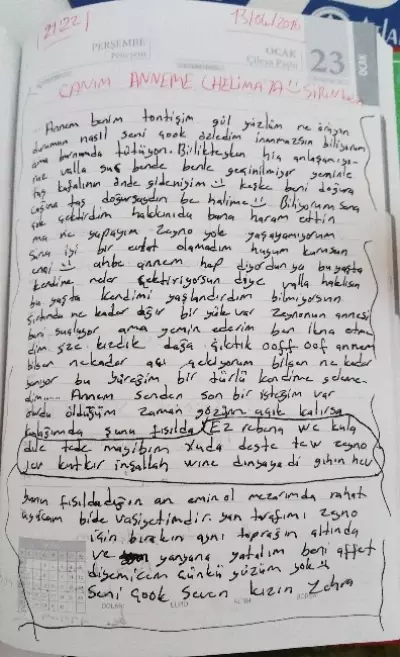 [21:22]
13/04/2016
PERŞEMBE
OCAK
23
OCAK
CANIM ANNEME (HELİMA YA :) ŞİRİNLERE
Annem benim tontişim gül yüzlüm ne
durumdan nasıl seni çook özledim inanmazsın biliyorum
ama burnumda tütüyon. Birlikteyken hiç anlaşamıyo
ruz valla suç bende benle geçinilmiyor yeminle
taş kafalının önde gideniyim :) keşke beni doğura
cağına taş doğursaydın be halime :) Biliyorum sana
çok çektirdim hakkınıda bana haram ettin
ma ne yapayım Zeyno yok yaşayamıyorum
sana iyi bir evlat olamadım huyum kurusun
emi :) ahbe annem hep diyordun ya bu yaşta
kendime neler çektiriyorsun diye valla haklısın
bu yaşta kendimi yaşlandırdım bilmiyorsun
sırtımda ne kadar ağır bir yük var Zeynonun annesi
beni suçluyor ama yemin ederim ben ikna etme
dim size kızdık dağa çıktık ooff oof annem
bilsen nekadar acı çekiyorum bilsen ne kadar
yanıyor bu yüreğim bir türlü kendime geleme
dim.... Annem senden son bir isteğim var
oda öldüğüm zaman gözüm açık kalırsa
kulağımda şunu fısılda (EZ rebena we kula
dile tede magibim xuda deste tew zeyno
jev kutkır inşallah wine dinyaya di gihin hev
bunu fısıldadığın an emin ol mezarımda rahat
uyucam bide vasiyetimdir yan tarafımı zeyno
için bırakın aynı toprağın altında
ve yanyana yatalım beni affet
diyemicem çünkü yüzüm yok :(
Seni Çook Seven kızın Zehra